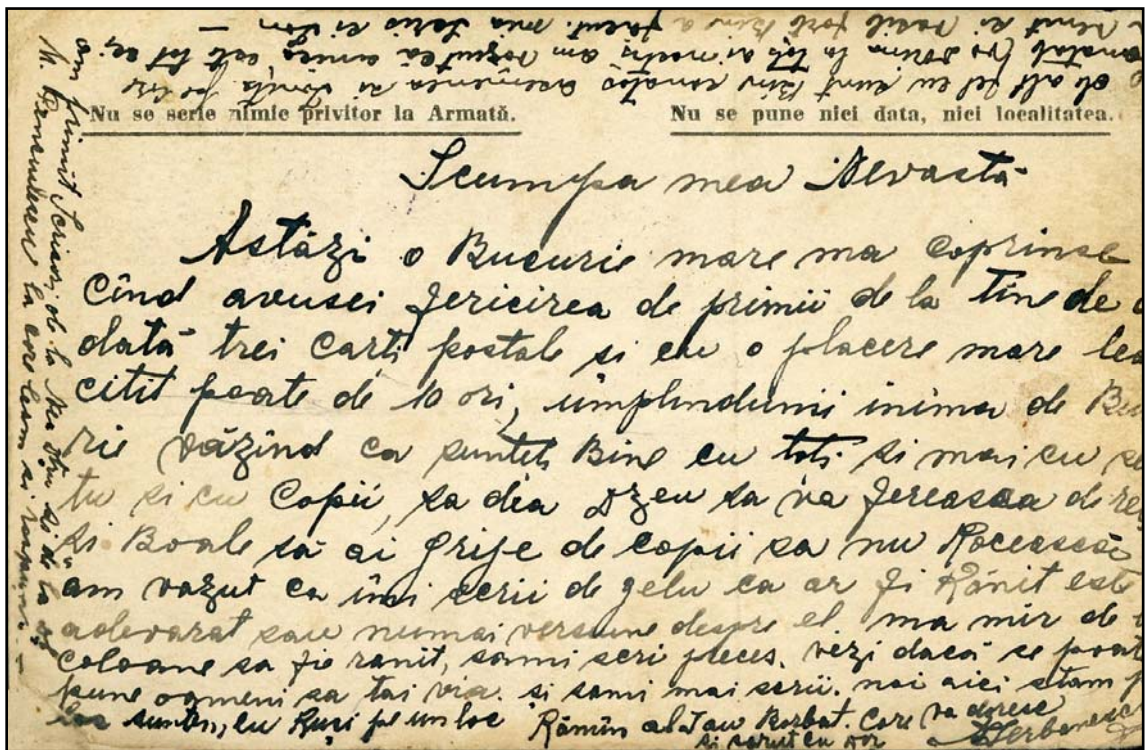 Nu se scrie nimic privitor la Armată.
Nu se pune nici data, nici localitatea.
Scumpa mea Nevastă
Astăzi o Bucurie mare ma coprinse
Cînd avusei fericirea de primii de la tine de
dată trei Carti postale si cu o placere mare
citit poate de 10 ori, umplindumi inima de
rie văzînd ca sunteti Bine cu toti si mai cu
tu si cu Copii, sa dea Dzeu sa va fereasca de
si Boale să ai grije de copii sa nu Raceasca
am vazut ca îmi scrii de gelu ca ar fi Rănit este
adevarat sau numai versiune despre el ma mir de
coloane sa fie ranit, sami scri preces. vezi dacă se
pune oameni sa tai via. si sami mai scrii. noi aici stam
loc suntem, cu Ruși pe un loc Rămîn al tau Barbat. Care va doresc
si saruta cu dor
Șerbanescu
am primit Scrisori de la Nea
si de la
la care leam si raspuns
de alt fel eu sunt bine sanatos asemenea si
sanatate la toti ai nostri am vazut că